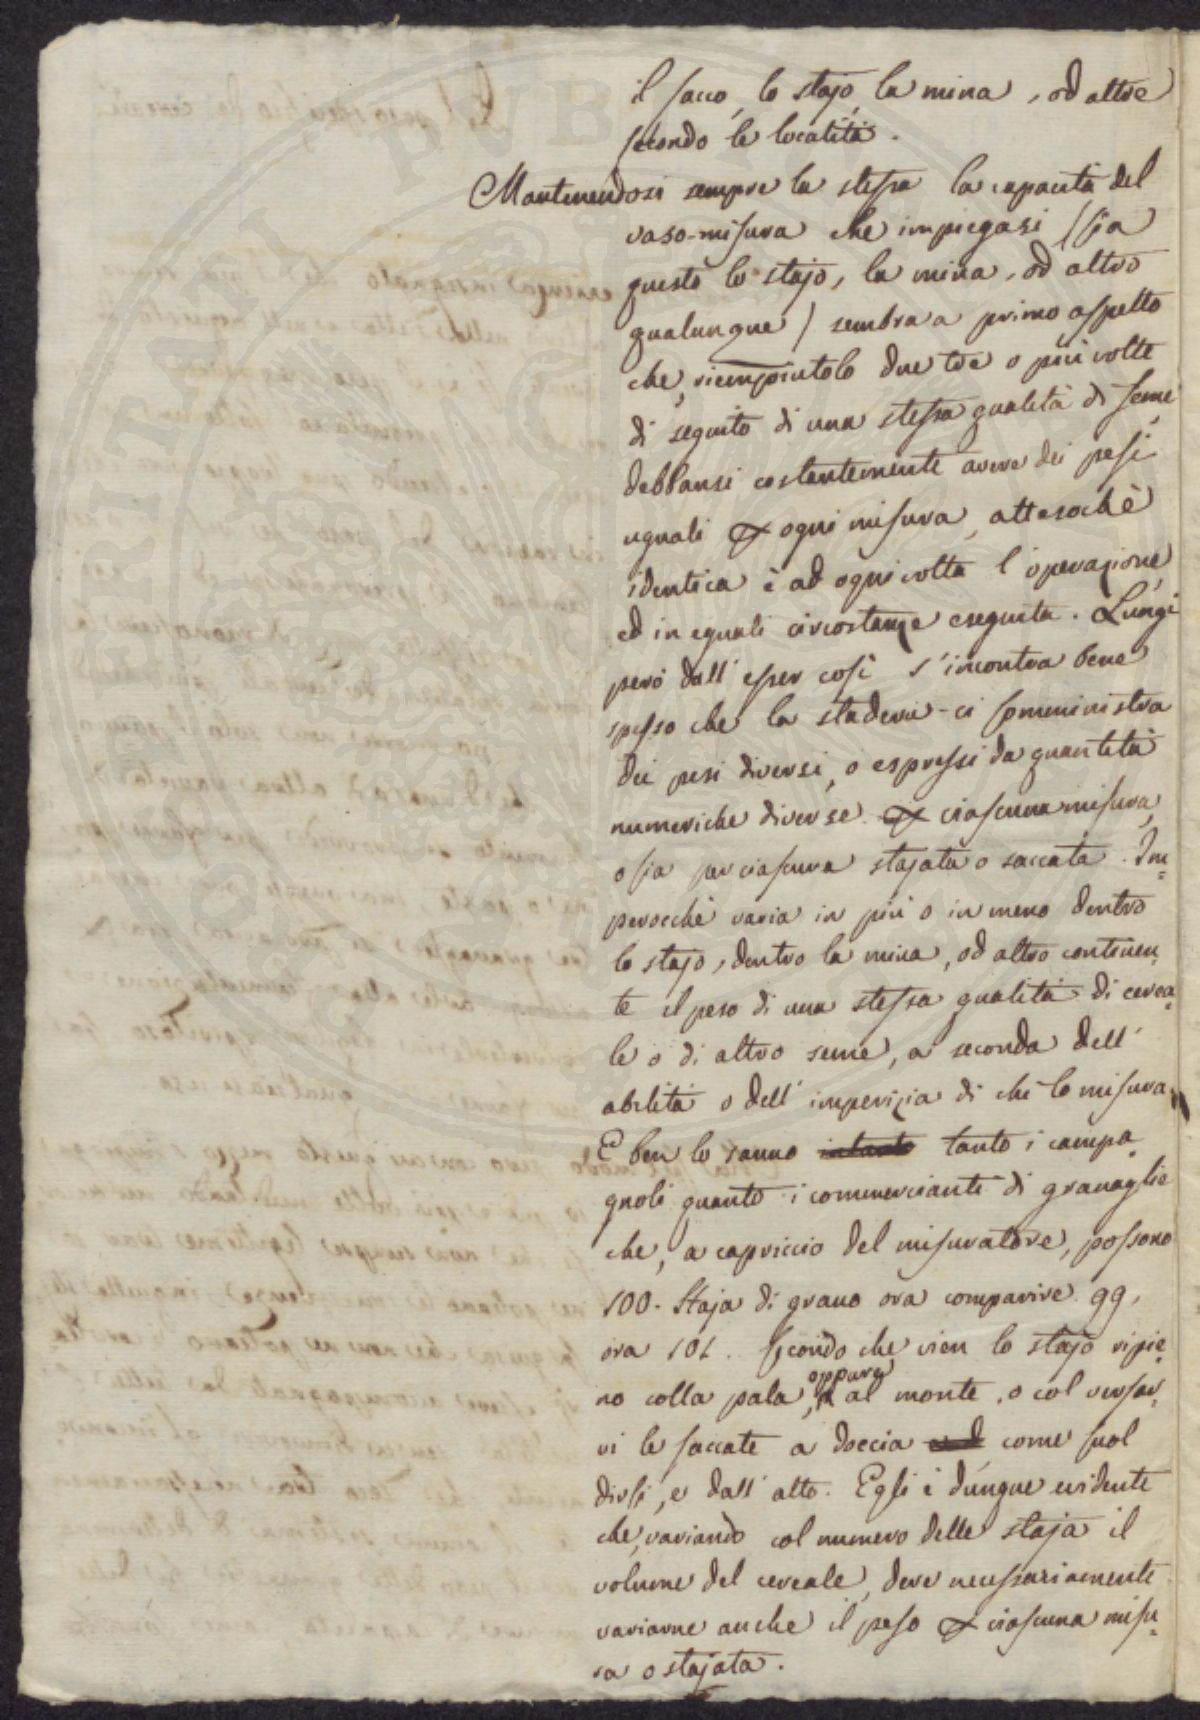 il sacco, lo stajo, la mina, od altre
secondo le località.
Mantenendosi sempre la stessa la capacità del
vaso-misura che impiegasi (sia
questo lo stajo, la mina, od altro
qualunque) sembra a primo aspetto
che, riempiutolo due tre o più volte
di seguito di una stessa qualità di seme,
debbansi costantemente avere dei pesi
uguali per ogni misura, attesochè
identica è ad ogni volta l'operazione,
ed in eguali circostanze eseguita. Lungi
però dall'esser così s'incontra bene
spesso che la stadera ci somministra
dei pesi diversi, o espressi da quantità
numeriche diverse per ciascuna misura,
o sia per ciascuna stajata o saccata. Im-
perocchè varia in più o in meno dentro
lo stajo, dentro la mina, od altro continen-
te il peso di una stessa qualità di cerea-
le o di altro seme, a seconda dell'
abilità o dell'imperizia di chi lo misura.
E ben lo sanno tanto i campa-
gnoli quanto i commercianti di granaglie
che, a capriccio del misuratore, possono
100. Staja di grano ora comparire 99,
ora 101. secondo che vien lo stajo ripie-
no colla pala, oppure al monte, o col versar-
vi le saccate a doccia come suol
dirsi, e dall'alto. Egli è dunque evidente
che, variando col numero delle staja il
volume del cereale, deve necessariamente
variarne anche il peso per ciascuna misu-
ra o stajata.